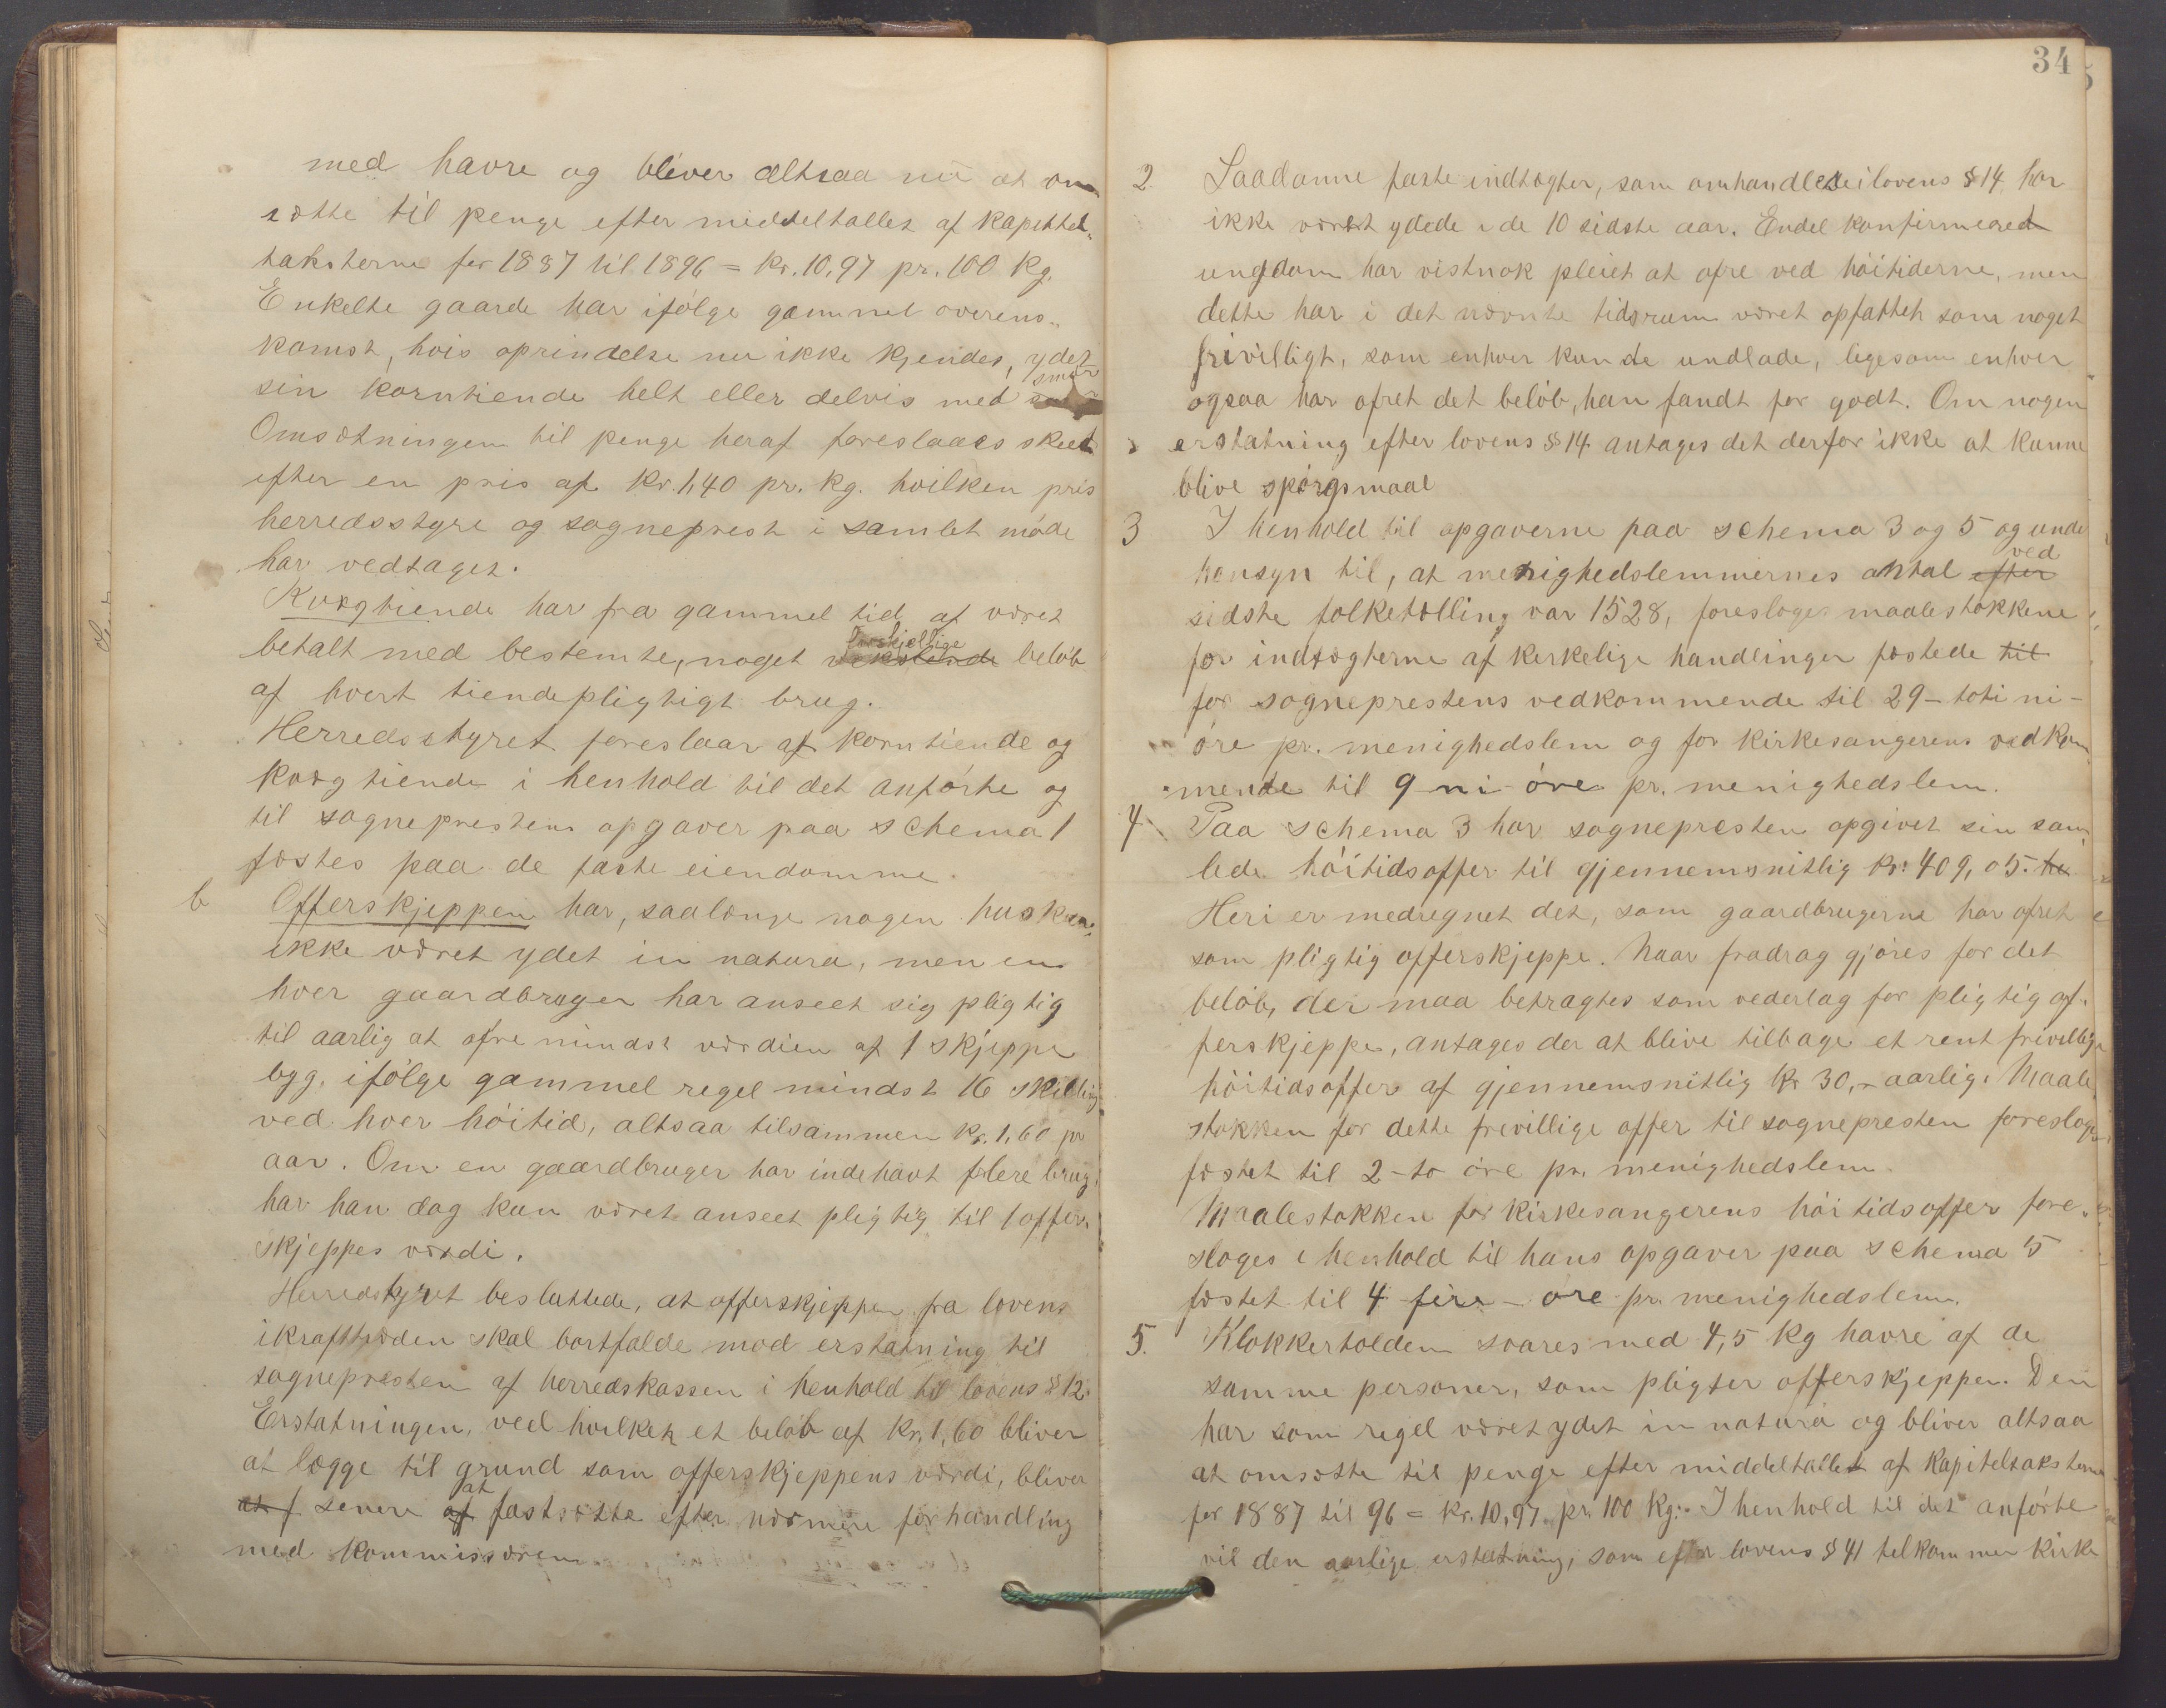 med havre og bliver altsaa nu at om
sætte til penge efter middeltallet af kapittel„
taksterne for 1887 til 1896 = kr. 10,97 pr. 100 kg.
Enkelte gaarde har ifölge gammel overens„
komst, hvis oprindelse nu ikke kjendes, ydet
smör
sin korntiende helt eller delvis med
Omsætningen til penge heraf foreslaaes skeet
efter en pris af kr 1,40 pr. kg. hvilken pris
herredsstyre og sogneprest i samlet möde
har vedtaget.
Kvægtiende har fra gammel tid af været
forskjellige
betalt med bestemte, noget vekslende belöb
af hvert tiendepligtigt brug.
Herredsstyret foreslaar af korntiende og
kvægtiende i henhold til det anförte og
til sogneprestens opgaver paa schema 1
fæstes paa de faste eiendomme.
b Offerskjeppen har, saalænge nogen husker,
ikke været ydet in natura, men en
hver gaardbruger har anseet sig pligtig
til aarlig at ofre mindst værdien af 1 skjeppe
byg, ifölge gammel regel mindst 16 skilling
ved hver höitid, altsaa tilsammen kr. 1,60 pr
aar. Om en gaardbruger har indehavt flere brug,
har han dog kun været anseet pligtig til 1 offer„
skjeppes værdi.
Herredstyret besluttede, at offerskjeppen fra lovens
ikrafttræden skal bortfalde mod erstatning til
sognepresten af herredskassen i henhold til lovens § 12.
Erstatningen, ved hvilken et belöb af kr, 1,60 bliver
at lægge til grund som offerskjeppens værdi, bliver
at
at f senere af fastsætte efter nærmere forhandling
med kommissæren
34
2. Saadanne faste indtægter, som omhandles i lovens § 14 har
ikke været ydede i de 10 sidste aar. Endel konfirmeret
ungdom har vistnok pleiet at ofre ved höitiderne, men
dette har i det nævnte tidsrum været opfattet som noget
frivilligt, som enhver kunde undlade, ligesom enhver
ogsaa har ofret det belöb, han fandt for godt. Om nogen
erstatning efter lovens § 14 antages det derfor ikke at kunne
blive spörgsmaal
3 I henhold til opgaverne paa schema 3 og 5 og unde
ved
hensyn til, at menighedslemmernes antal efter
sidste folketælling var 1528, foresloges maalestokkene
for indtægterne af kirkelige handlinger fæstede til
for sogneprestens vedkommende til 29 - toti ni -
öre pr. menighedslem og for kirkesangerens vedkom
mende til 9 ni öre pr. menighedslem.
4 Paa schema 3 har sognepresten opgivet sin sam
lede höitidsoffer til gjennemsnitlig kr: 409,05. he
Heri er medregnet det, som gaardbrugerne har ofret
som pligtig offerskjeppe. Naar fradrag gjöres for det
belöb, der maa betragtes som vederlag for pligtig of„
ferskjeppe, antages der at blive tilbage et rent frivillig
höitidsoffer af gjennemsnitlig kr 30,- aarlig. Maale
stokken for dette frivillige offer til sognepresten foresloges
fæstet til 2 - to öre pr. menighedslem.
Maalestokken for kirkesangerens höitidsoffer fore„
sloges i henhold til hans opgaver paa schema 5
fæstet til 4 fire - öre pr. menighedslem.
5. Klokkertolden svares med 4,5 kg havre af de
samme personer, som pligter offerskjeppen. Den
har som regel været ydet in natura og bliver altsaa
at omsætte til penge efter middeltallet af kapiteltaksterne
for 1887 til 96 = kr. 10,97 pr. 100 kg. - I henhold til det anförte
vil den aarlige erstatning, som efter lovens § 41 tilkommer kirke